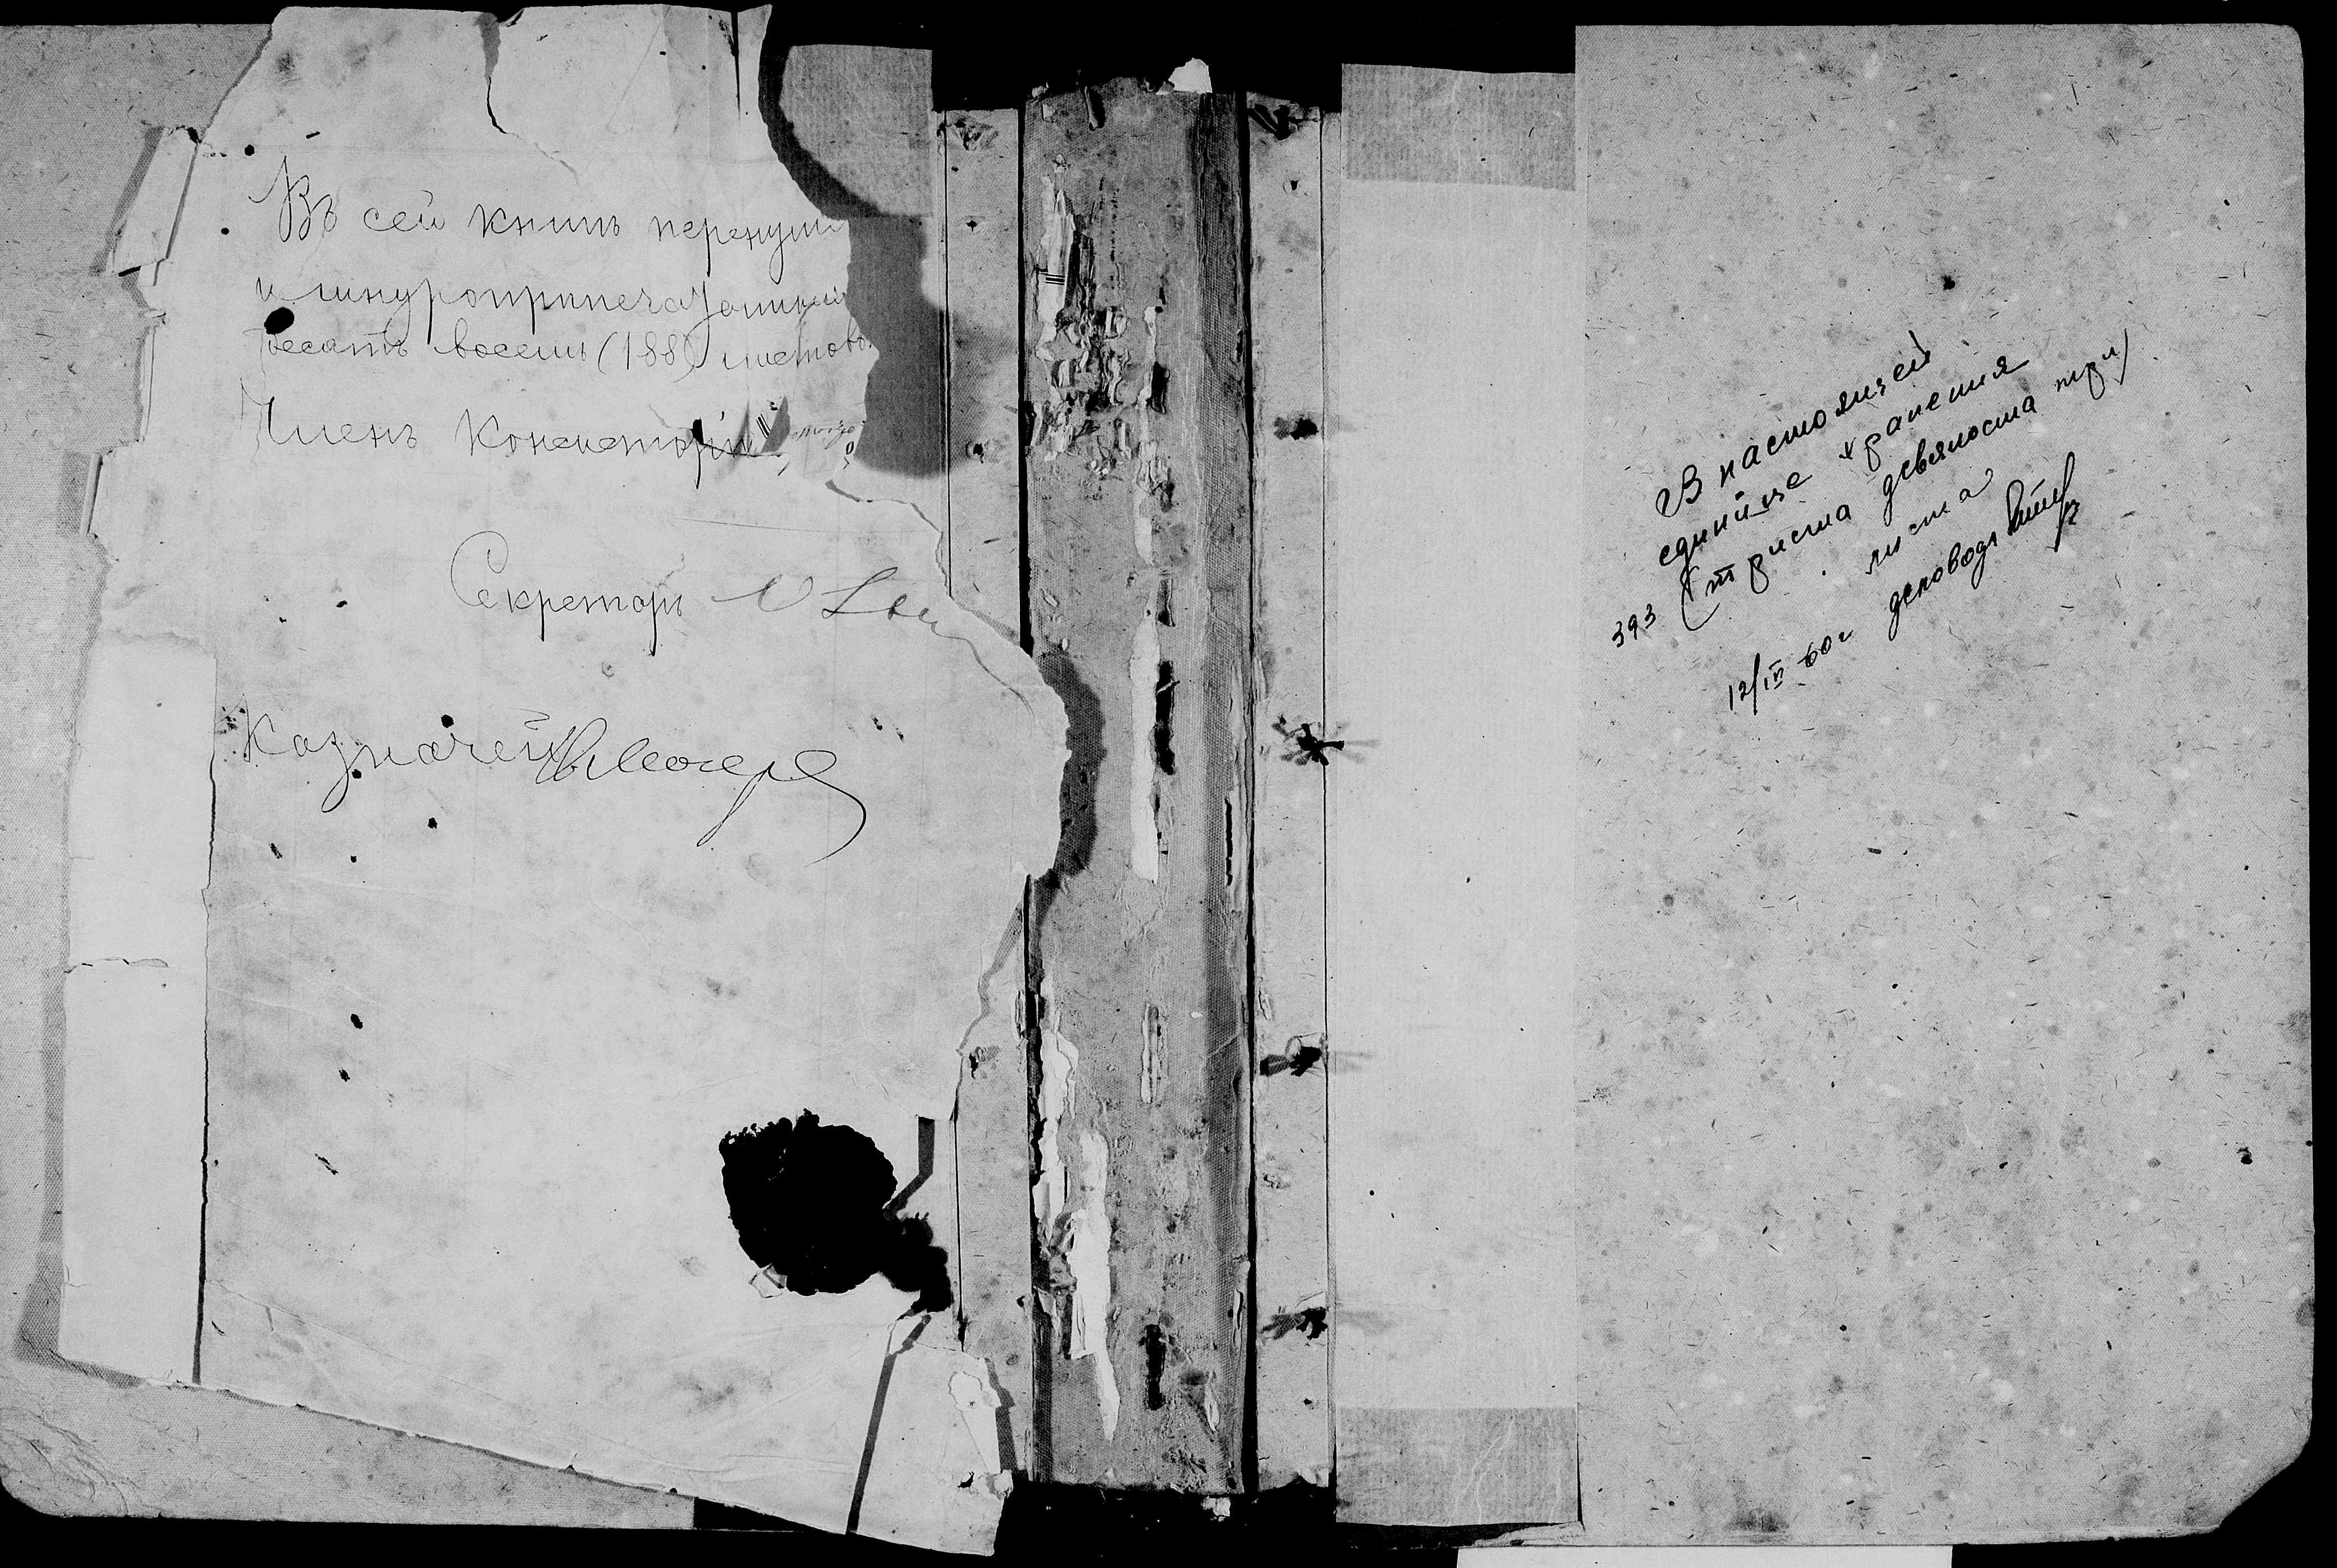 Въ сей книгѣ перенуме
и шнуроприпечатанны
десятъ восемь (188) листовъ
Членъ Консисторіи
Секретарь
Казначей
В настоящей
единице хранения
393 (триста девяноста три)
листа
12/IV 60 г